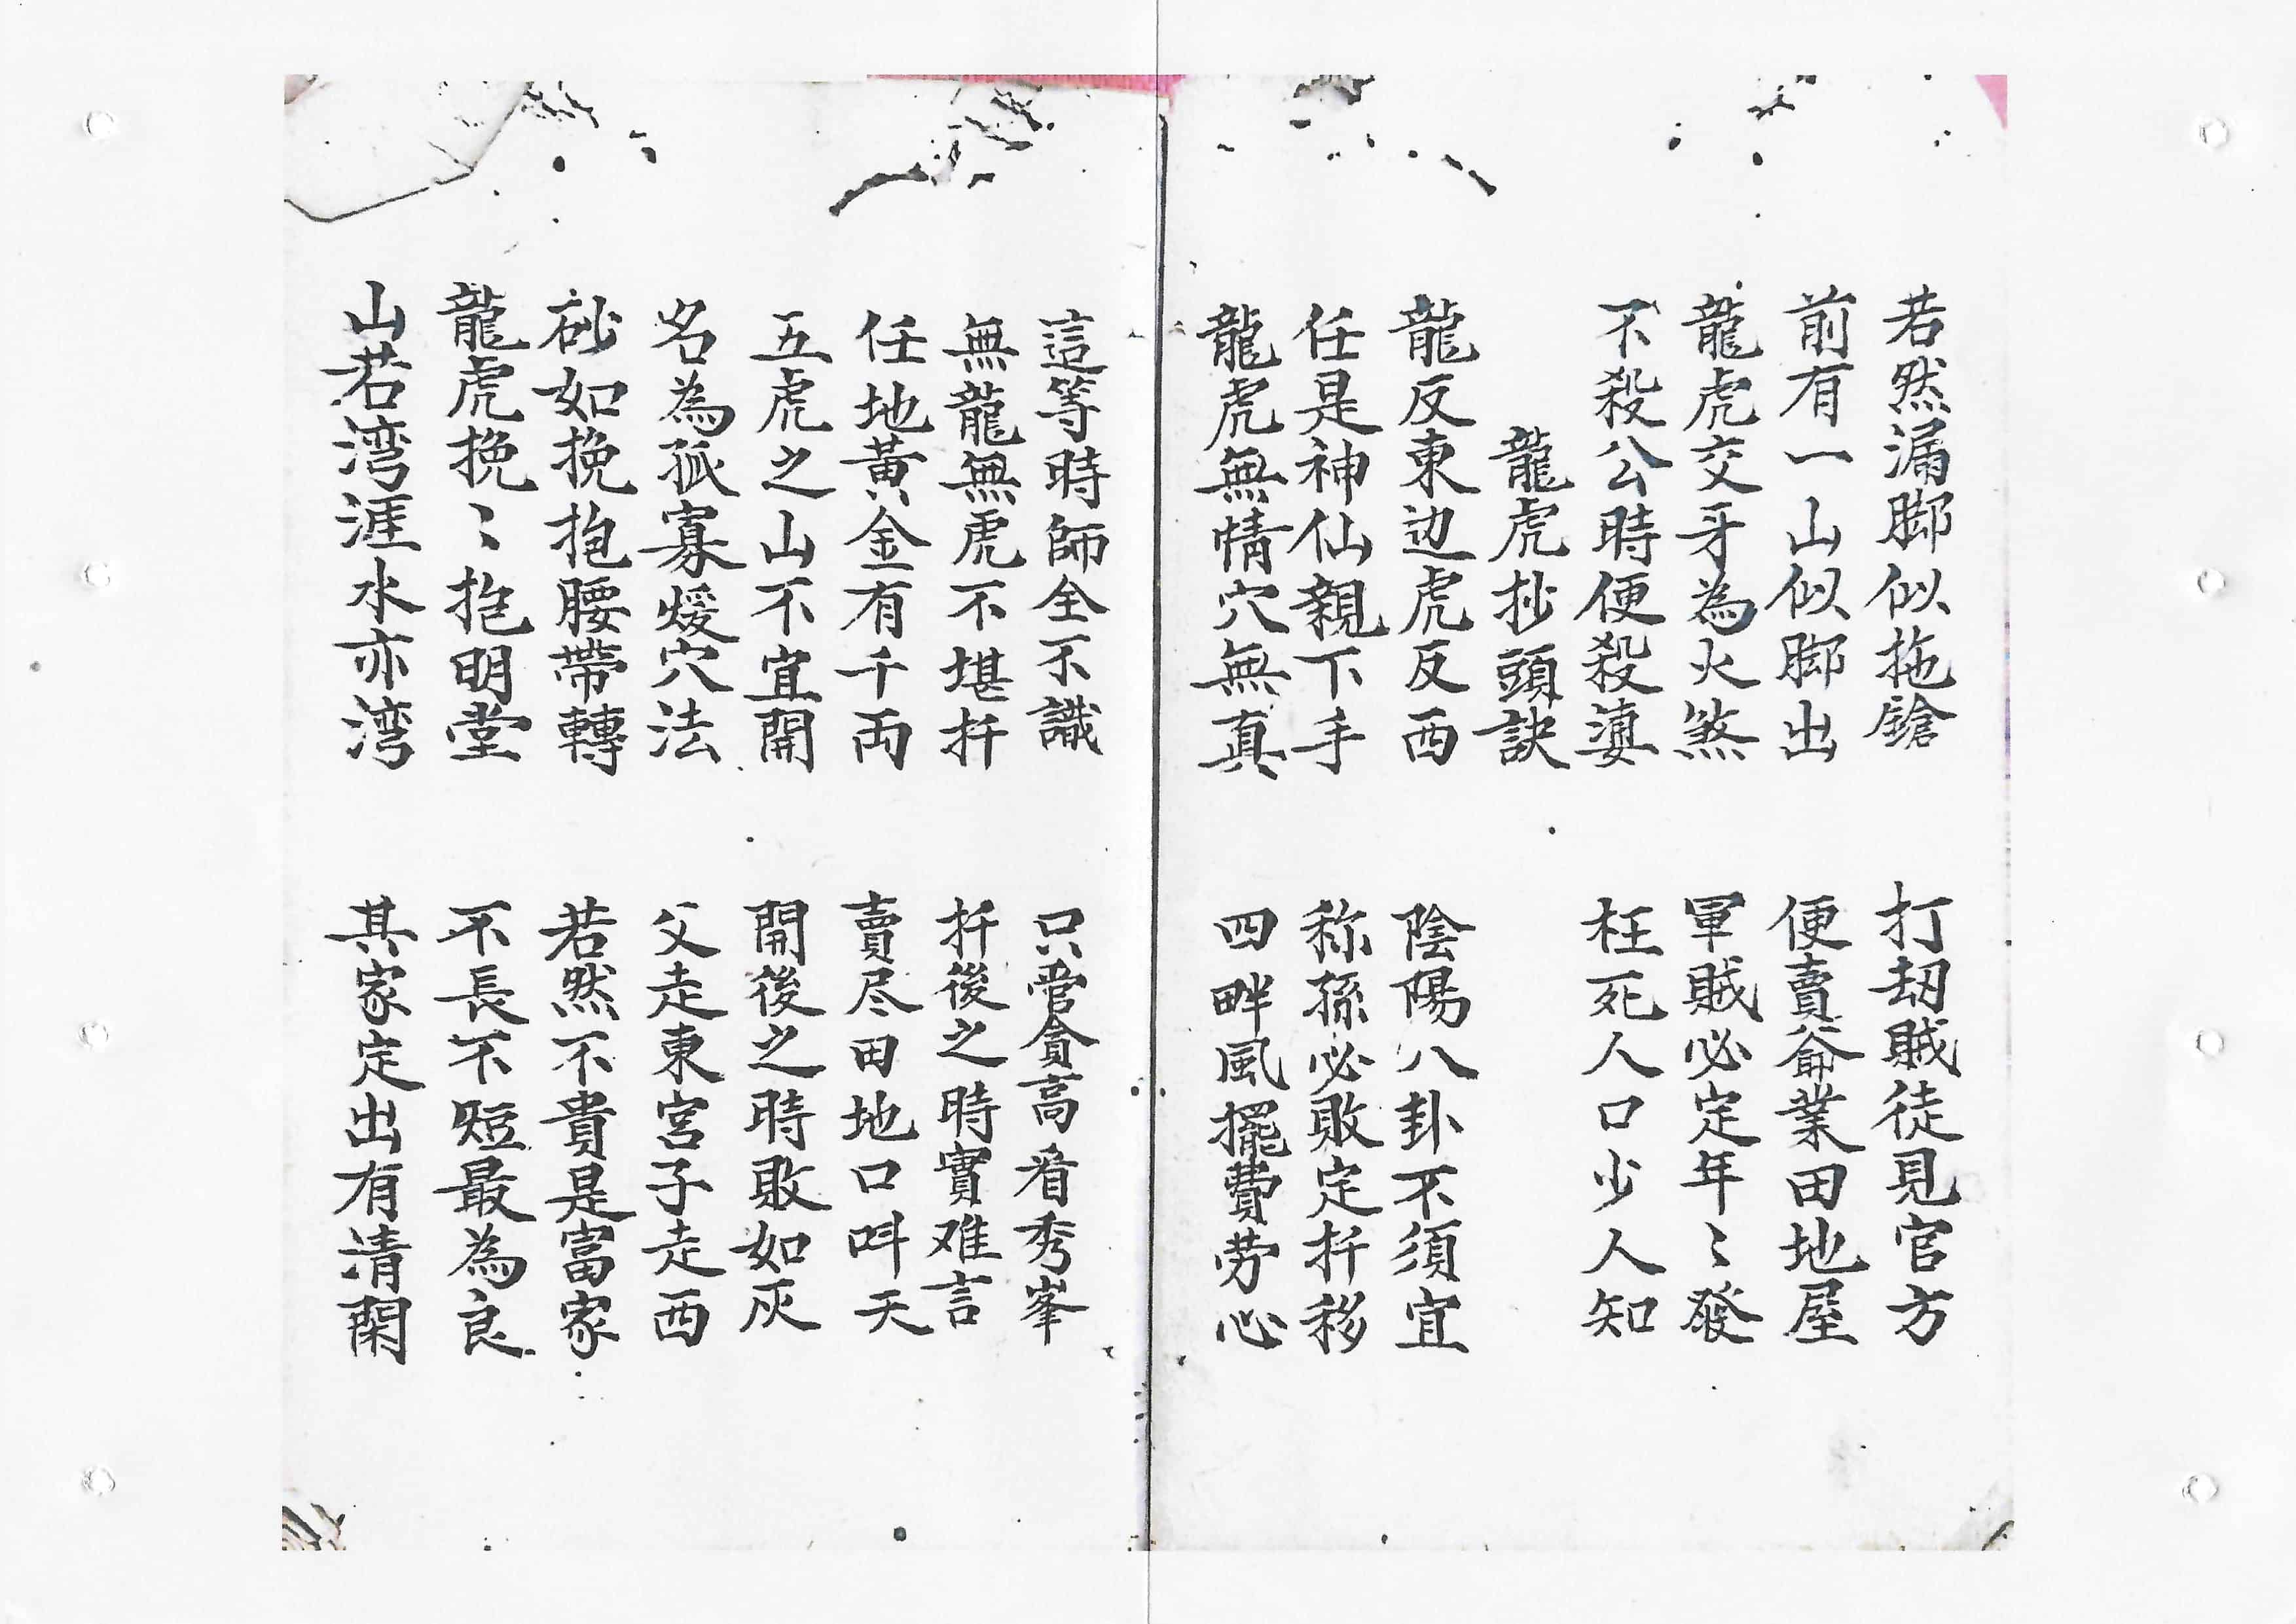 若然漏脚似拖鎗　打刼賊徒見官方
前有一山似脚出　便賣爺業田地屋
龍虎交牙為火煞　軍賊必定年〻發
不殺公時便殺婆　枉死人口少人知
龍虎抄頭訣
龍反東边虎反西　陰陽八卦不須宜
任是神仙親下手　称孫必敗定扦移
龍虎無情穴無真　四畔風擺費劳心
這等時師全不識　只管貪高看秀峯
無龍無虎不堪扦　扦後之時實难言
任地黃金有千両　賣尽田地口呌天
五虎之山不宜開　開後之時敗如灰
名為孤寡煖穴法　父走東宮子走西
砂如挽抱腰帶轉　若然不貴是富家
龍虎挽〻抱明堂　不長不短最為良
山若湾涯水亦湾　其家定出有清閑